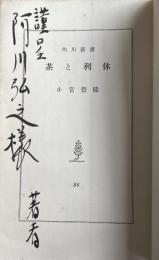 謹呈
阿川弘之様
著者
角川新書
茶と利休
小宮豊隆
86